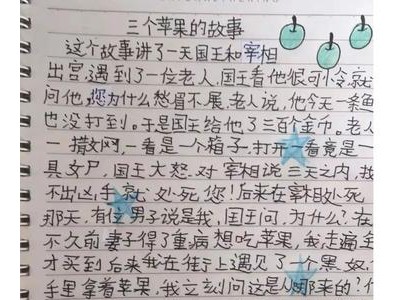 三个苹果的故事
这个故事讲了一天国王和宰相
出宫,遇到了一位老人,国王看他很可怜就
问他,您为什么愁眉不展,老人说,他今天一条鱼
也没打到。于是国王给他了三百个金币。老人
一撒网,一看是个箱子,打开一看竟是一
具女尸,国王大怒,对宰相说三天之内,找
不出凶手就处死您!后来在宰相处死
那天,有位男子说是我,国王问,为什么?在
不久前妻子得了重病想吃苹果,我走遍全
才买到后来我在街上遇见了一个黑奴
手里拿着苹果,我立刻问这是从哪来的?